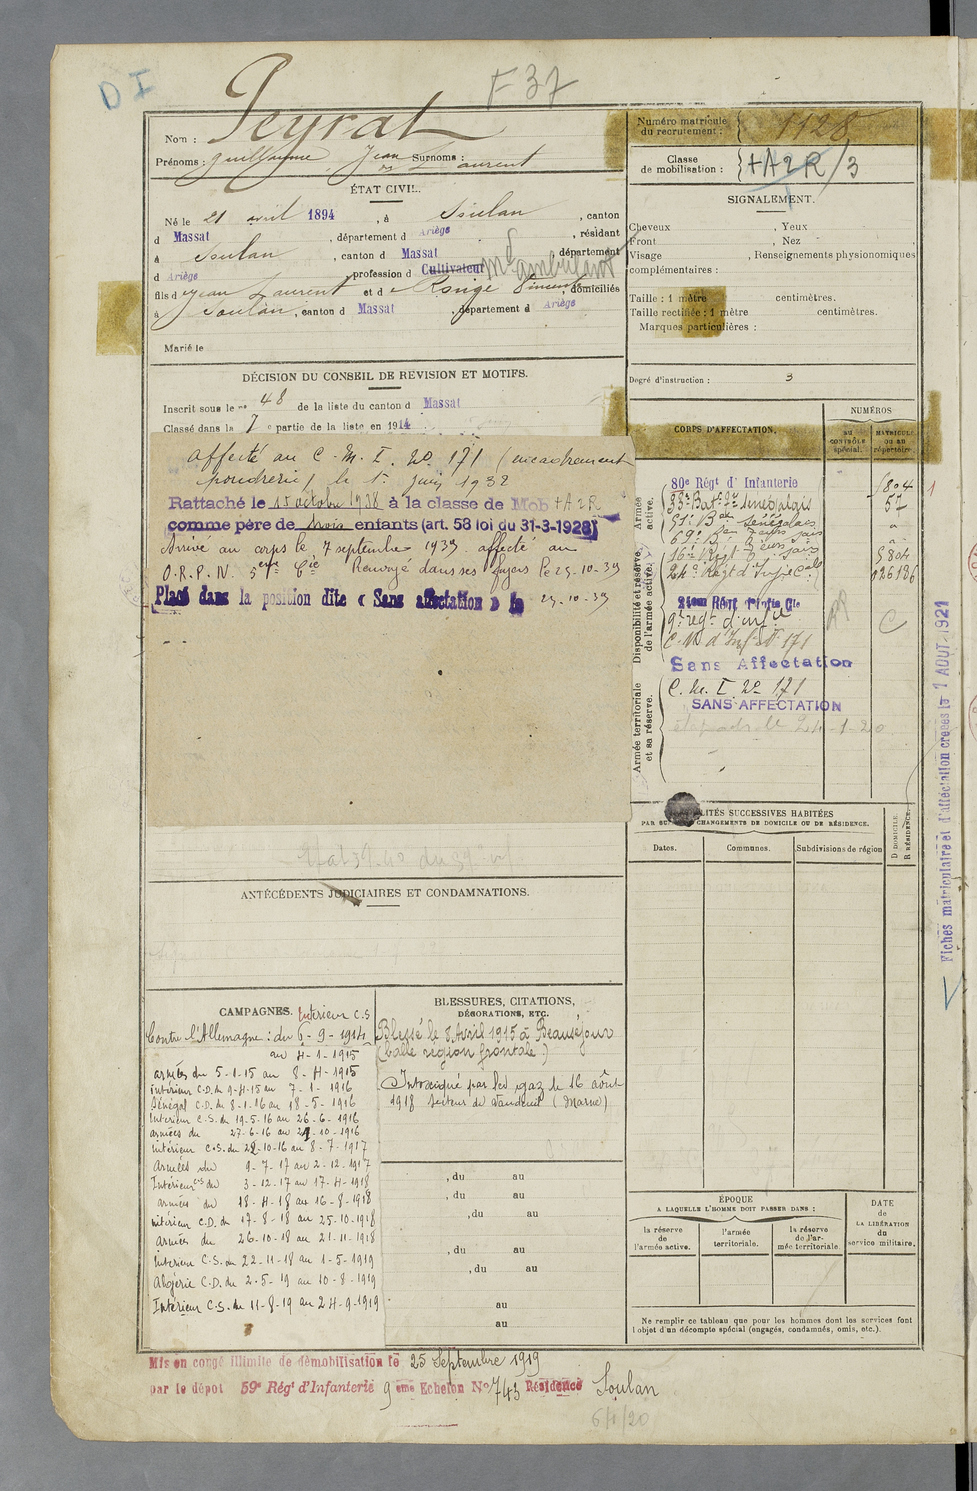 D I
F 37
Nom : Peyrat
Prénoms : Guillaume Jean Surnoms : Laurent
ÉTAT CIVIL.
Né le 21 avril 1894, à Soulan, canton
d Massat, département d Ariège, résidant
à Soulan, canton d Massat, département
d Ariège profession d Cultivateur Md ambulant
fils d Jean Laurent et d e Rouge Vincente, domiciliés
à Soulan, canton d Massat, département d Ariège
Marié le
DÉCISION DU CONSEIL DE REVISION ET MOTIFS.
Inscrit sous le no 48 de la liste du canton d Massat
Classé dans la 7 e partie de la liste en 1914
affecté au C. M. I. no 171 (encadrement
poudrerie) le 1er juin 1932
Rattaché le 15 octobre 1938 à la classe de Mob +A2R
comme père de trois enfants (art. 58 loi du 31-3-1928)
Arrivé au corps le 7 septembre 1939 affecté au
O.R.P.N. 5eme Cie Renvoyé dans ses foyers le 29-10-39
Placé dans la position dite « Sans affectation » le 29-10-39
ANTÉCÉDENTS JUDICIAIRES ET CONDAMNATIONS.
CAMPAGNES. Intérieur C.S
Contre l'Allemagne : du 6-9-1914
au 4-1-1915
armées du 5-1-15 au 8-4-1915
intérieur C.D. du 9-4-15 au 7-1-1916
Sénégal C.D. du 8-1-16 au 18-5-1916
Intérieur C.S. du 19-5-16 au 26-6-1916
armées du 27-6-16 au 21-10-1916
intérieur C.S. du 22-10-16 au 8-7-1917
Armées du 9-7-17 au 2-12-1917
Intérieur CS du 3-12-17 au 17-4-1918
armées du 18-4-18 au 16-8-1918
intérieur C.D. du 17-8-18 au 25-10-1918
armées du 26-10-18 au 21-11-1918
intérieur C.S. du 22-11-18 au 1-5-1919
Algérie C.D. du 2-5-19 au 10-8-1919
Intérieur C.S. du 11-8-19 au 24-9-1919
BLESSURES, CITATIONS,
DÉCORATIONS, ETC.
Blessé le 8 Avril 1915 à Beauséjour
(balle région frontale)
Intoxiqué par les gaz le 16 août
1918 secteur de Vandeuil (Marne)
, du au
, du au
, du au
, du au
, du au
au
au
Mis en congé illimité de démobilisation le 25 Septembre 1919
par le dépôt 59e Régt d'Infanterie 9 ème Echelon No 743 Résidence Soulan
6/1/20
Numéro matricule
du recrutement : 1128
Classe
de mobilisation : +A2R/3
SIGNALEMENT.
Cheveux , Yeux
Front , Nez ,
Visage , Renseignements physionomiques
complémentaires :
Taille : 1 mètre centimètres.
Taille rectifiée : 1 mètre centimètres.
Marques particulières :
Degré d'instruction : 3
CORPS D'AFFECTATION.
NUMÉROS
au
CONTRÔLE
spécial.
MATRICULE
ou au
répertoire.
Armée
active.
80e Régt d'Infanterie 1804
53e Baton Sénégalais 57
51e Bon Sénégalais "
69e Bon
16e Régt 9804
24e Régt d'Infie Cale 126186
Disponibilité et réserve
de l'armée active.
24ème Régt d'Infie Cle
9e regt d'infie C
C. M d'Inf. no 171
Sans Affectation
Armée territoriale
et sa réserve.
C. M. I. no 171
SANS AFFECTATION
LOCALITÉS SUCCESSIVES HABITÉES
PAR SUITE DE CHANGEMENTS DE DOMICILE OU DE RÉSIDENCE.
Dates. Communes. Subdivisions de région
D DOMICILE
R RÉSIDENCE.
ÉPOQUE
A LAQUELLE L'HOMME DOIT PASSER DANS :
la réserve
de
l'armée active.
l'armée
territoriale.
la réserve
de l'ar-
mée territoriale.
DATE
de
LA LIBÉRATION
du
service militaire.
Ne remplir ce tableau que pour les hommes dont les services font
l'objet d'un décompte spécial (engagés, condamnés, omis, etc.).
Fiches matriculaire et d'affectation créées le 1 AOUT 1921